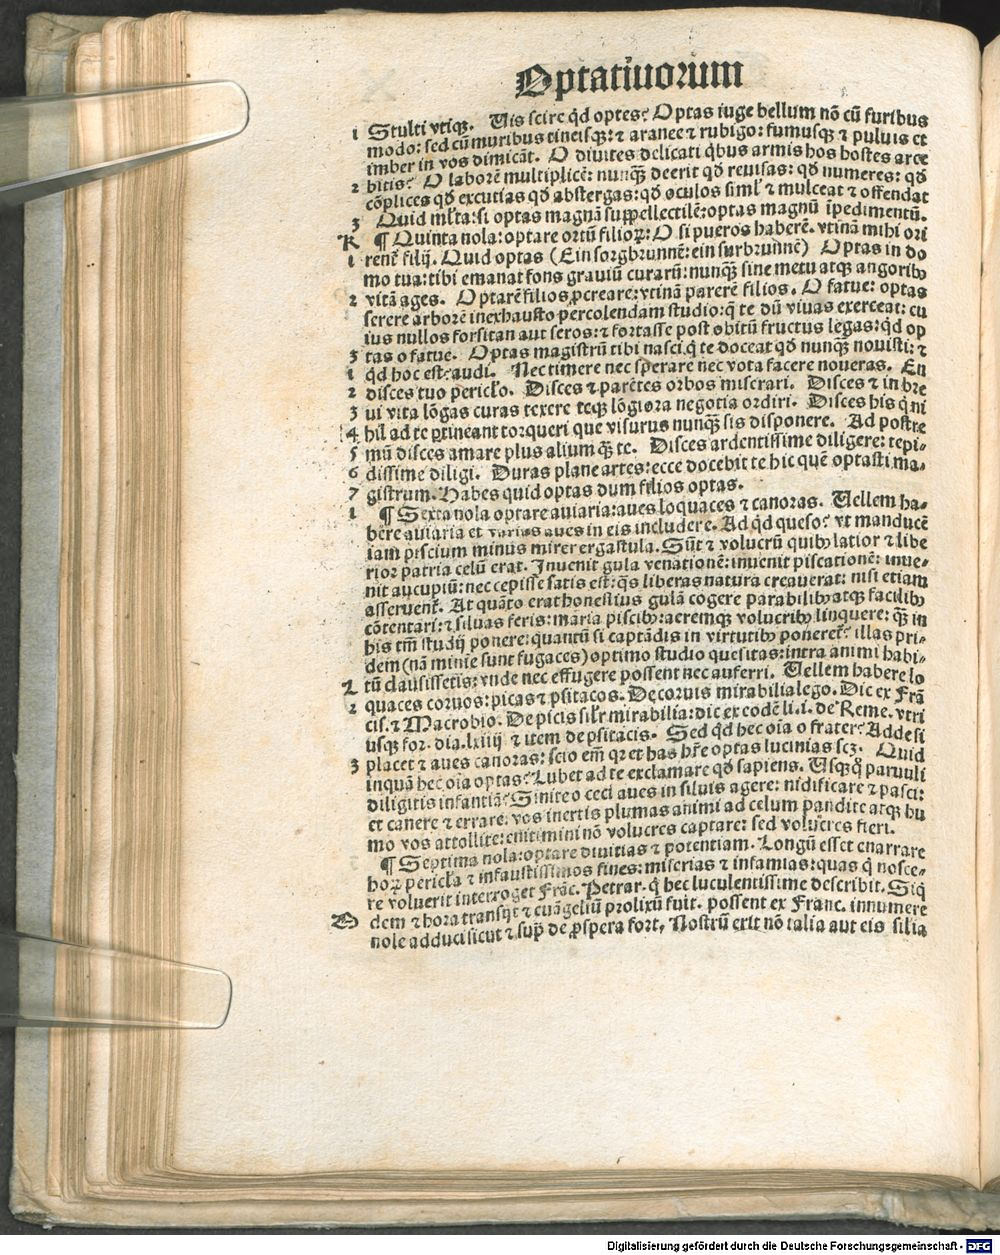 Optatiuorum
1 Stulti vtiqꝫ. Uis scire qd optes? Optas iuge bellum nõ cũ furibus
modo: sed cũ muribus tineisqꝫ: ⁊ aranee ⁊ rubigo: fumusqꝫ ⁊ puluis et
imber in vos dimicãt. O diuites delicati qbus armis hos hostes arce
2 bitis? O laborẽ multiplicẽ: nunqꝫ deerit qď reuisas: qď numeres: qď
cõplices qď excutias qď abstergas: qď oculos siml’ ⁊ mulceat ⁊ offendat
3 Quid ml’ta: si optas magnã suppellectilẽ: optas magnũ ĩpedimentũ.
K ¶ Quinta nola: optare ortũ filioꝝ: O si pueros haberẽ. vtinã mihi ori
1 rent’ filij. Quid optas (Ein sorgbrunnẽ: ein surbrunnẽ) Optas in do
mo tua: tibi emanat fons grauiũ curarũ: nunqꝫ sine metu atqꝫ angoribꝰ
2 vitã ages. Optarẽ filios ꝓcreare: vtinã parerẽ filios. O fatue: optas
serere arborẽ inexhausto percolendam studio: q̃ te dũ viuas exerceat: cu
ius nullos forsitan aut seros: ⁊ fortasse post obitũ fructus legas: qd op
3 tas o fatue. Optas magistrũ tibi nasci q̃ te doceat qď nunqꝫ nouisti: ⁊
1 qď hoc est: audi. Nec timere nec sperare nec vota facere noueras. En
2 disces tuo pericl’o. Disces ⁊ parẽtes orbos miserari. Disces ⁊ in bre
3 ui vita lõgas curas texere teqꝫ lõgiora negotia ordiri. Disces his q̃ ni
4 hil ad te ꝑtineant torqueri que visurus nunqꝫ sis disponere. Ad postre
5 mũ disces amare plus alium qꝫ te. Disces ardentissime diligere: tepi-
6 dissime diligi. Duras plane artes: ecce docebit te hic quẽ optasti ma-
7 gistrum. Habes quid optas dum filios optas.
1 ¶ Sexta nola optare auiaria: aues loquaces ⁊ canoras. Uellem ha-
bere auiaria et varias aues in eis includere. Ad qd queso? vt manducẽ
iam piscium minus mirer ergastula. Sũt ⁊ volucrũ quibꝰ latior ⁊ libe
rior patria celũ erat. Inuenit gula venationẽ: inuenit piscationẽ: inue-
nit aucupiũ: nec cepisse satis est: q̃s liberas natura creauerat: nisi etiam
asseruent’. At quãto erat honestius gulã cogere parabilibꝰ atqꝫ facilibꝰ
cõtentari: ⁊ siluas feris: maria piscibꝰ: aeremqꝫ volucribꝰ linquere: qꝫ in
his tm̃ studij ponere: quantũ si captãdis in virtutibꝰ poneret’? illas pri-
dem (nã minie sunt fugaces) optimo studio quesitas: intra animi habi-
L tũ clausissetis: vnde nec effugere possent nec auferri. Uellem habere lo
2 quaces coruos: picas ⁊ psitacos. De coruis mirabilia lego. Dic ex Frã
cis. ⁊ Macrobio. De picis sil’r mirabilia: dic ex eodẽ li. i. de Reme. vtri
usqꝫ for. dia. lxiiij ⁊ item de psitacis. Sed qd hec oĩa o frater? Adde si
3 placet ⁊ aues canoras: scio em̃ qr et has hr̃e optas lucinias scꝫ. Quid
inquã hec oĩa optas? Lubet ad te exclamare qď sapiens. Usqꝫqꝫ paruuli
diligitis infantiã? Sinite o ceci aues in siluis agere: nidificare ⁊ pasci:
et canere ⁊ errare: vos inertis plumas animi ad celum pandite atqꝫ hu
mo vos attollite: enitimini nõ volucres captare: sed volucres fieri.
¶ Septima nola: optare diuitias ⁊ potentiam. Longũ esset enarrare
hoꝝ pericl’a ⁊ infaustissimos fines: miserias ⁊ infamias: quas q̃ nosce-
re voluerit interroget Frãc. Petrar. q̃ hec luculentissime describit. Siq̃
dem ⁊ hora transijt ⁊ euãgeliũ prolixũ fuit. possent ex Franc. innumere
nole adduci sicut ⁊ supͣ de ꝓspera fort. Nostrũ erit nõ talia aut eis silia
Digitalisierung gefördert durch die Deutsche Forschungsgemeinschaft - DFG